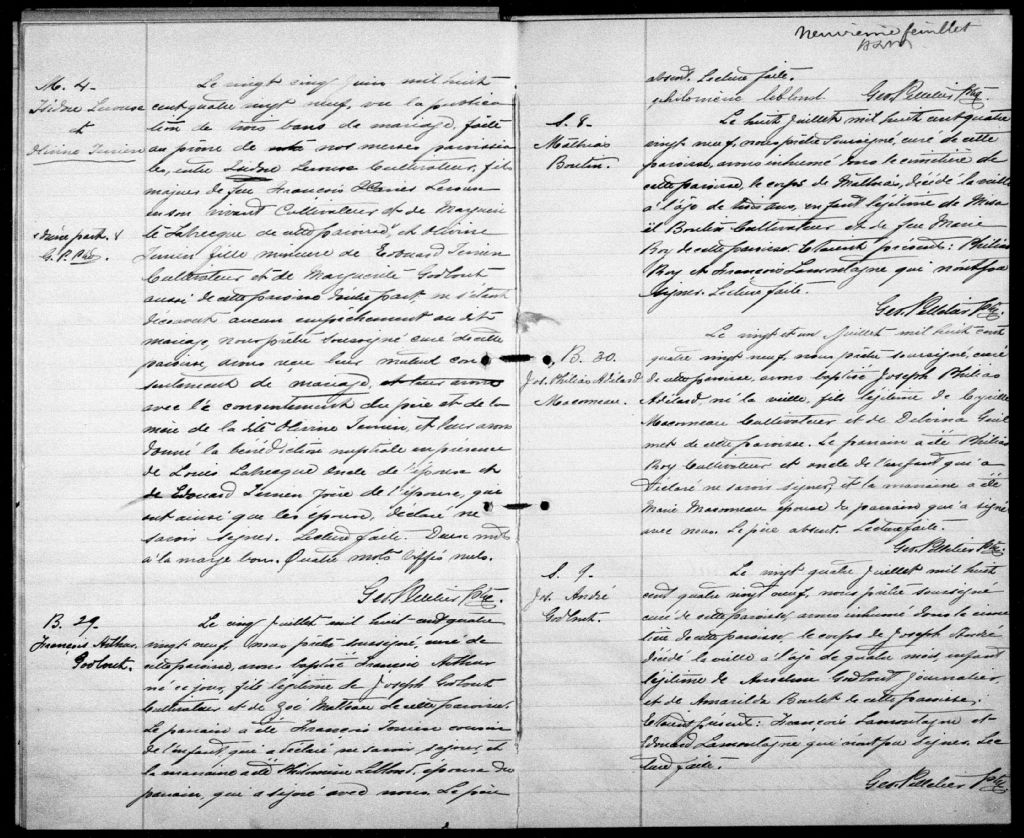 M. 4.
Isidore Leroux
et
Olivine Terrien
Le vingt cinq Juin mil huit
cent quatre vingt neuf, vu la publica
tion de trois bans de mariage, faite
au prône de nos messes paroissia
les, entre Isidore Leroux Cultivateur, fils
majeur de feu François Leroux
en son vivant Cultivateur et de Margueri
te Labrecque de cette paroisse, et Olivine
Terrien fille mineure de Edouard Terrien
Cultivateur et de Marguerite Godbout
aussi de cette paroisse d'autre part ne s'étant
découvert aucun empêchement au dit
mariage, nous prêtre soussigné curé de cette
paroisse, avons reçu leur mutuel con
sentement de mariage, et leur avons
avec le consentement du père et de la
mère de la dite Olivine Terrien, et leur avons
donné la bénédiction nuptiale en présence
de Louis Labrecque oncle de l'époux et
de Edouard Terrien père de l'épouse, qui
ont ainsi que les époux, déclaré ne
savoir signer. Lecture faite. Deux mots
à la marge bons. Quatre mots biffés nuls.
Geo. Pelletier Ptre.
d'une part.
G. P. Ptre.
B. 29.
François Arthur
Godbout.
Le cinq Juillet mil huit cent quatre
vingt neuf, nous prêtre soussigné, curé de
cette paroisse, avons baptisé François Arthur
né ce jour, fils légitime de Joseph Godbout
Cultivateur et de Zoé de cette paroisse.
Le parrain a été François Terrien cousin
de l'enfant qui a déclaré ne savoir signer, et
la marraine a été Philomène Leblond, épouse du
parrain, qui a signé avec nous. Le père
Neuvième feuillet
absent. Lecture faite.
philomène leblond Geo. Pelletier Ptre.
S. 8.
Mathias
Boutin.
Le huit Juillet mil huit cent quatre
vingt neuf, nous prêtre soussigné, curé de cette
paroisse, avons inhumé dans le cimetière de
cette paroisse, le corps de Mathias, décédé la veille
à l'âge de trois ans, enfant légitime de Misa
ël Boutin Cultivateur et de feu Marie
Roy de cette paroisse. Etaient présents: Philias
Roy et François Lamontagne qui n'ont pu
signer. Lecture faite.
Geo. Pelletier Ptre.
B. 30.
Jos. Philias Adélard
Marconneau.
Le vingt et un Juillet mil huit cent
quatre vingt neuf, nous prêtre soussigné, curé
de cette paroisse, avons baptisé Joseph Philias
Adélard, né la veille, fils légitime de Cyrille
Marconneau Cultivateur et de Delvina Guil
met de cette paroisse. Le parrain a été Philias
Roy Cultivateur et oncle de l'enfant qui a
déclaré ne savoir signer, et la marraine a été
Marie Marconneau épouse du parrain qui a signé
avec nous. Le père absent. Lecture faite.
Geo. Pelletier Ptre.
S. 9.
Jos. André
Godbout.
Le vingt quatre Juillet mil huit
cent quatre vingt neuf, nous prêtre soussigné
curé de cette paroisse, avons inhumé dans le cime
tière de cette paroisse, le corps de Joseph André
décédé la veille à l'âge de quatre mois, enfant
légitime de Anselme Godbout Journalier,
et de Amarilda Boulet de cette paroisse;
Etaient présents: François Lamontagne et
Edouard Lamontagne qui n'ont pu signer. Lec
ture faite.
Geo. Pelletier Ptre.